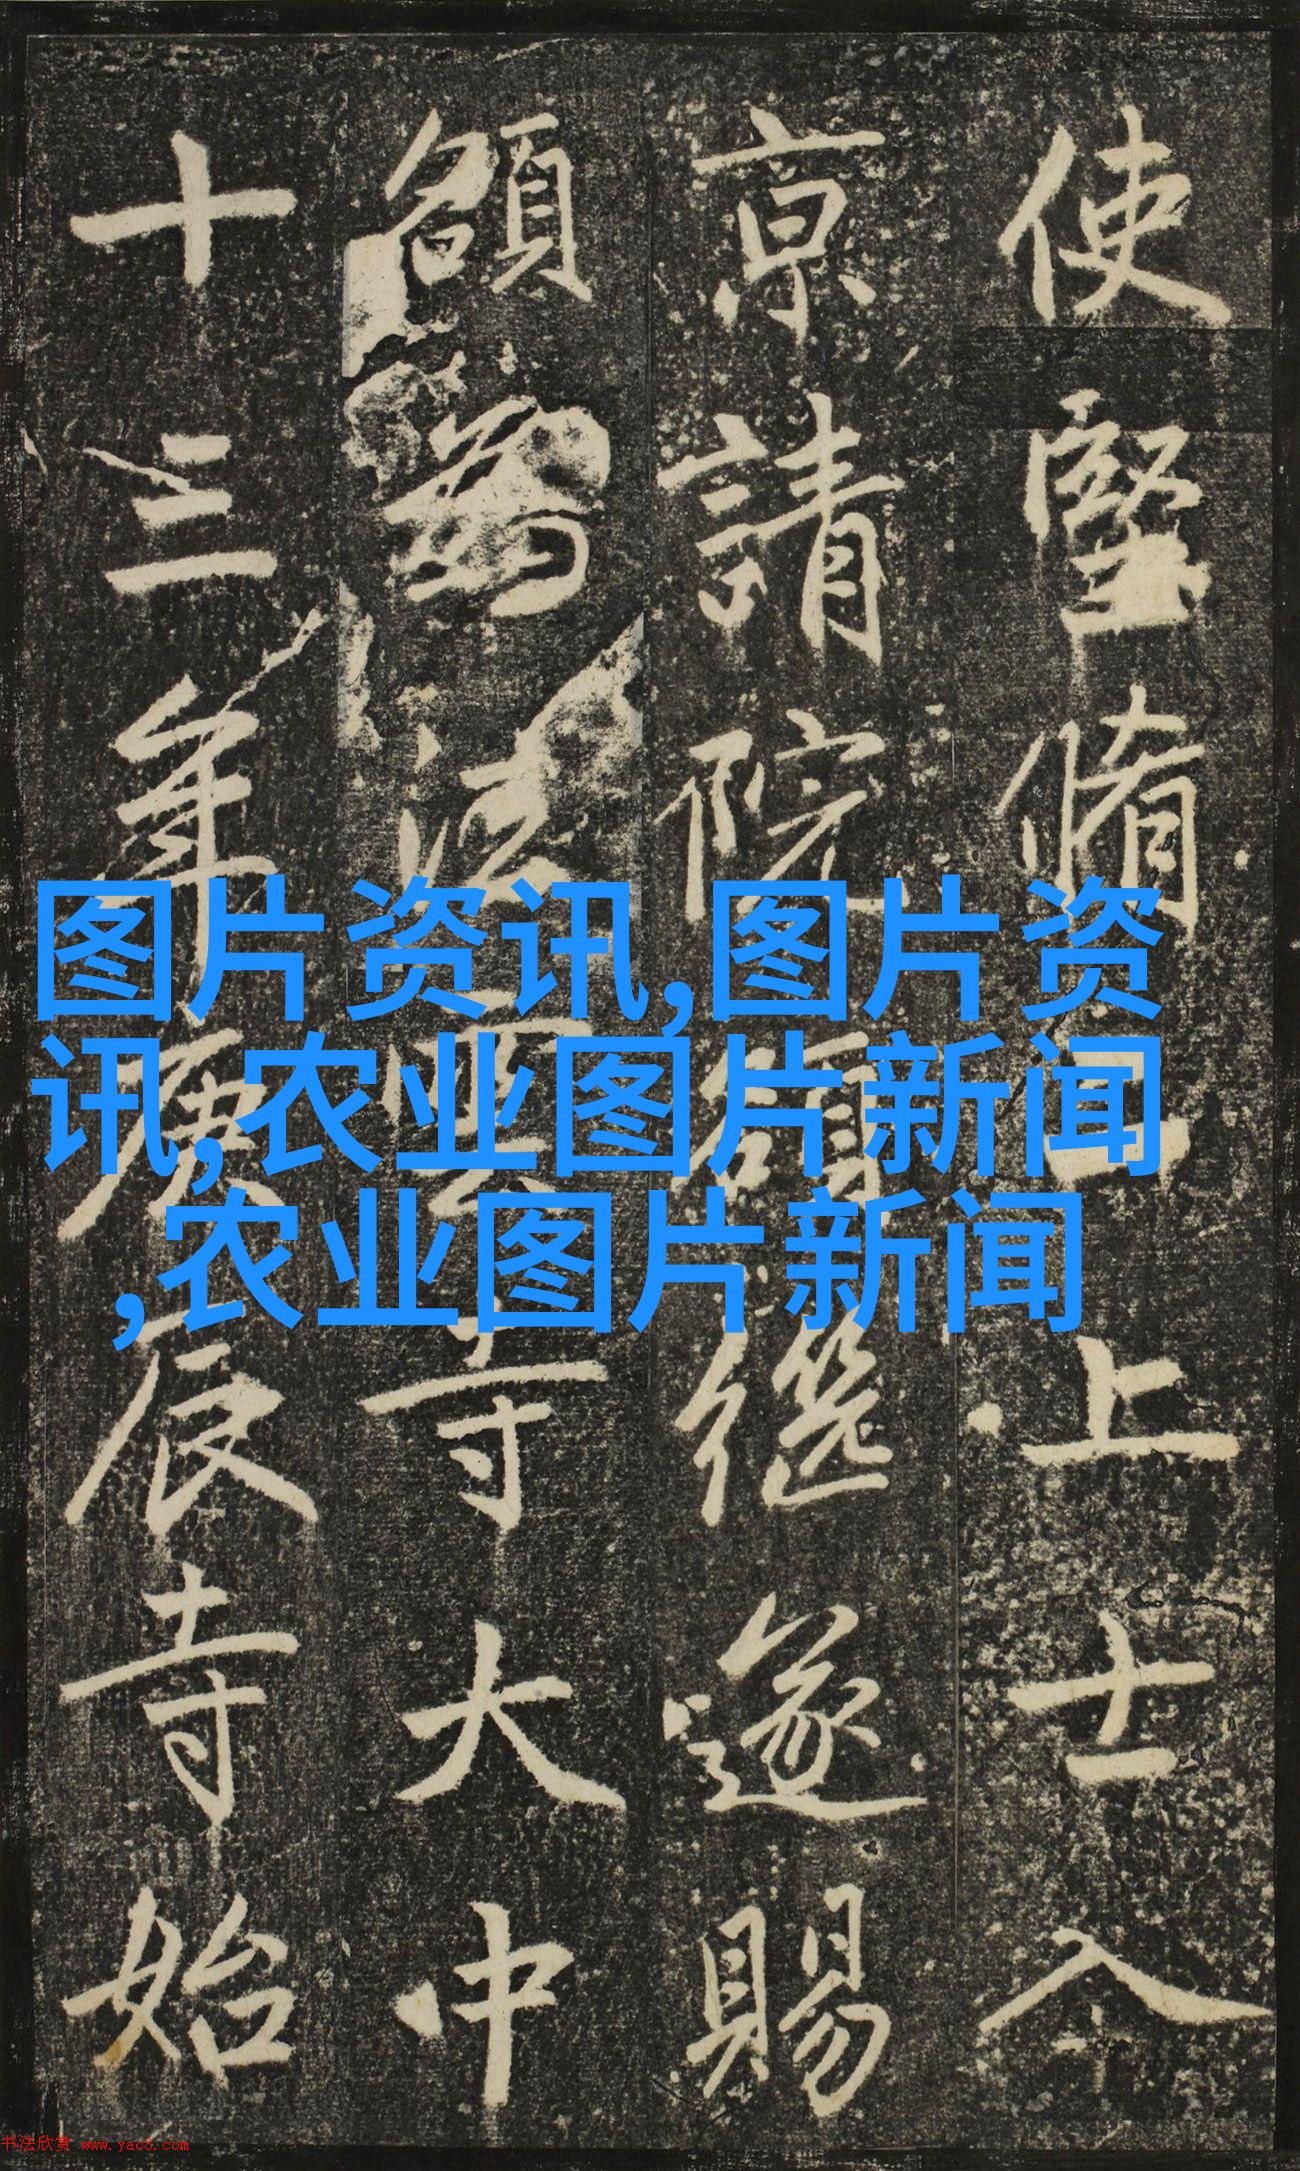 使堅脩上士入
京請院額繼遂賜
額為法雲寺大中
十三年庚辰寺始
图片资讯,图片资
讯,农业图片新闻
,农业图片新闻
书法欣赏 www.yac8.com